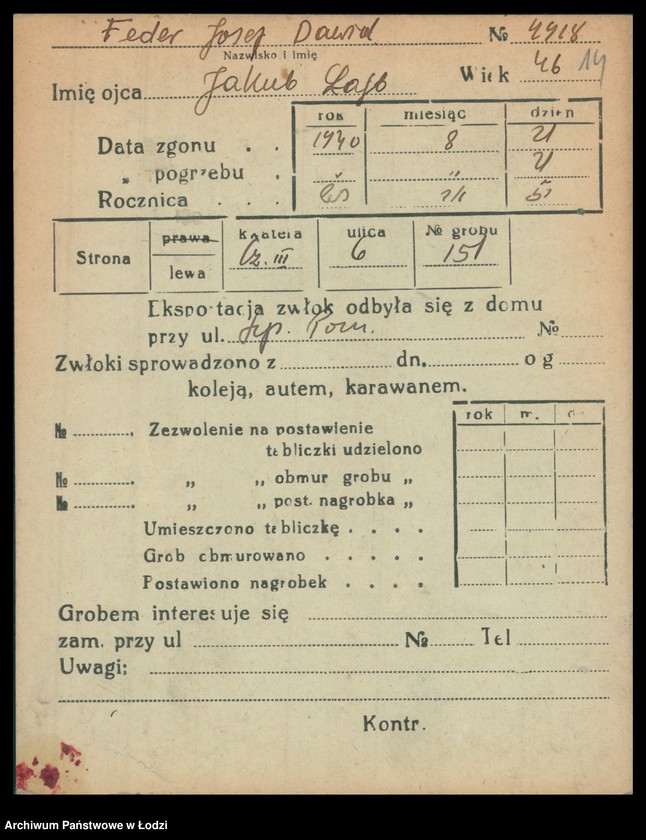 Feder Josef Dawid № 4918
Nazwisko i imię
Imię ojca Jakub Lajb Wiek 46 14
rok miesiąc dzień
Data zgonu . . 1940 8 21
„ pogrzebu . „ „ 21
Rocznica . . .
Strona prawa lewa kwatera Cz. III ulica 6 № grobu 151
Eksportacja zwłok odbyła się z domu
przy ul. №
Zwłoki sprowadzono z dn. o g
koleją, autem, karawanem.
rok m. d.
№ Zezwolenie na postawienie
tabliczki udzielono
№ „ „ obmur grobu „
№ „ „ post. nagrobka „
Umieszczono tabliczkę . . . .
Grób obmurowano . . . .
Postawiono nagrobek . . . .
Grobem interesuje się
zam. przy ul № Tel
Uwagi:
Kontr.
Archiwum Państwowe w Łodzi